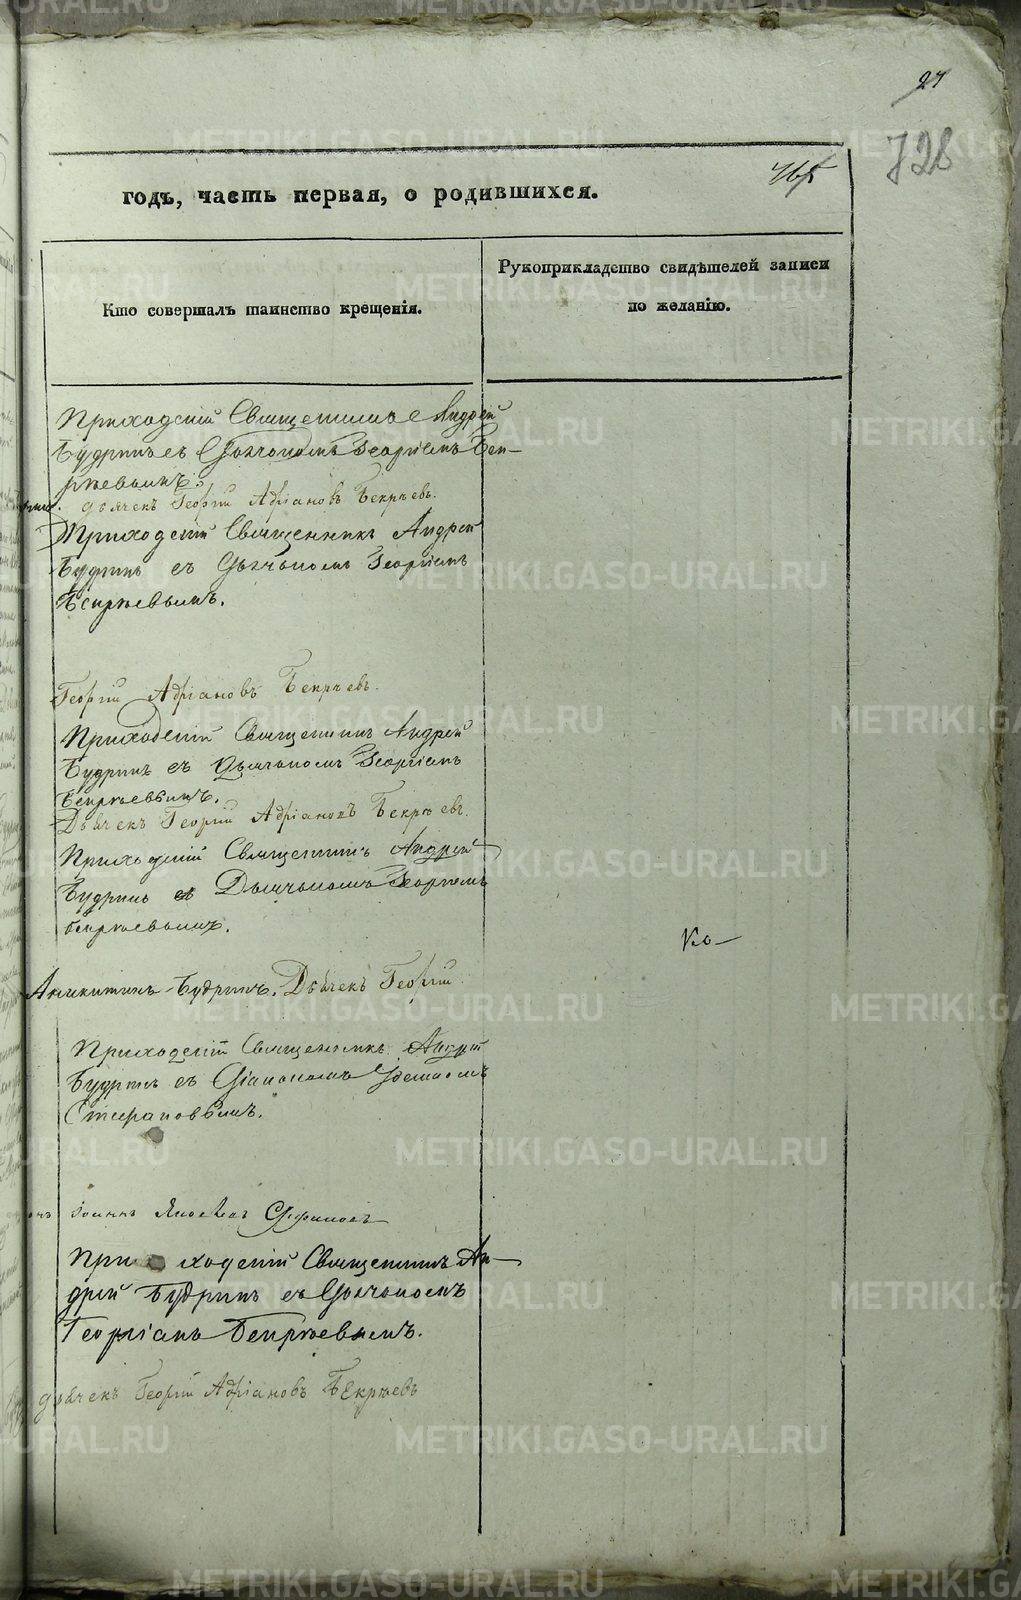 27
728
годъ, часть первая, о родившихся.
Кто совершалъ таинство крещенія.
Рукоприкладство свидѣтелей записи
по желанію.
Приходскій Священникъ Андрей
Будринъ съ Дьячкомъ Георгіемъ Бек-
рѣевымъ.
дьячекъ Георгій Адріановъ Бекрѣевъ.
Приходскій Священникъ Андрей
Будринъ съ Дьячкомъ Георгіемъ
Бекрѣевымъ.
Георгій Адріановъ Бекрѣевъ.
Приходскій Священникъ Андрей
Будринъ съ Дьячкомъ Георгіемъ
Бекрѣевымъ.
Дьячекъ Георгій Адріановъ Бекрѣевъ.
Приходскій Священникъ Андрей
Будринъ съ Дьячкомъ Георгіемъ
Бекрѣевымъ.
Ко-
Аникитинъ Будринъ. Дьячекъ Георгій
Приходскій Священникъ Андрей
Будринъ съ
Стефановымъ.
Іоаннъ Яковлевъ
Приходскій Священникъ Ан-
дрей Будринъ съ Дьячкомъ
Георгіемъ Бекрѣевымъ.
дьячекъ Георгій Адріановъ Бекрѣевъ
METRIKI.GASO-URAL.RU